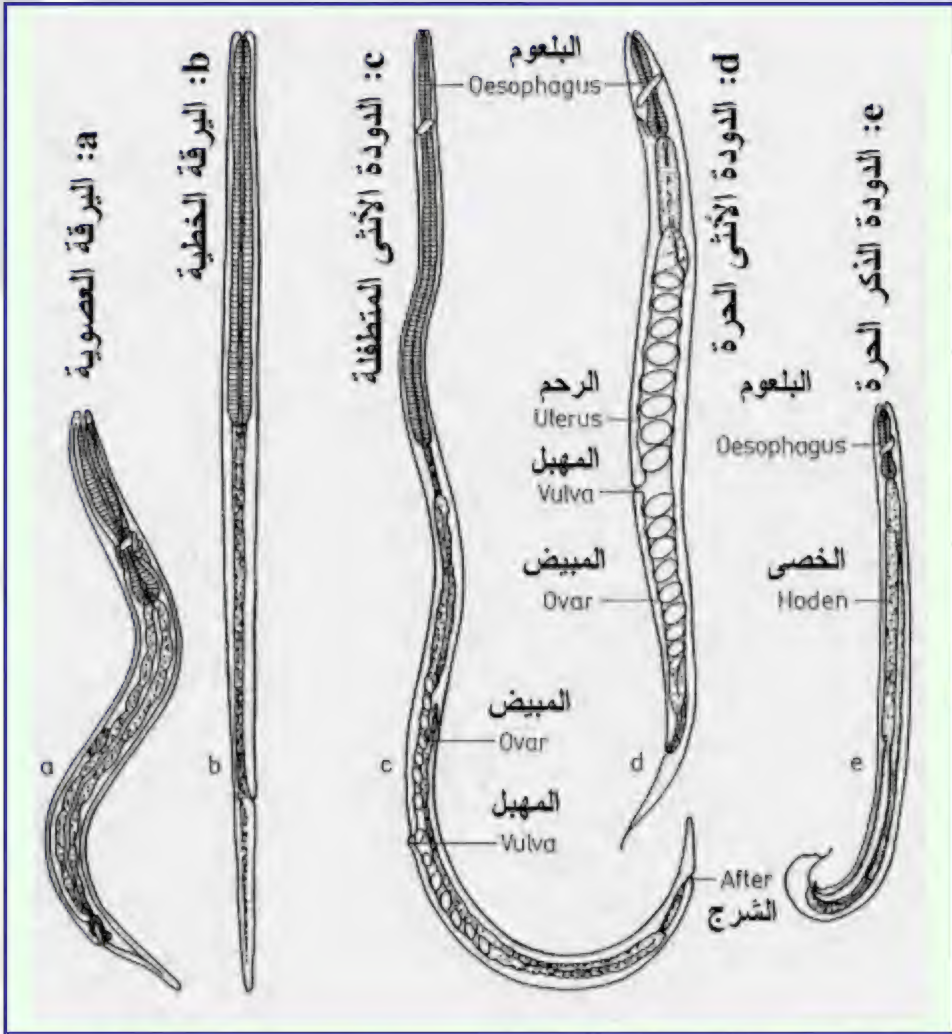 a: اليرقة العصوية
b: اليرقة الخطية
c: الدودة الأنثى المتطفلة
البلعوم
Oesophagus
d: الدودة الأنثى الحرة
e: الدودة الذكر الحرة
الرحم
Ulerus
المهبل
Vulva
المبيض
Ovar
البلعوم
Oesophagus
الخصى
Hoden
المبيض
Ovar
المهبل
Vulva
After
الشرج
a
b
c
d
e